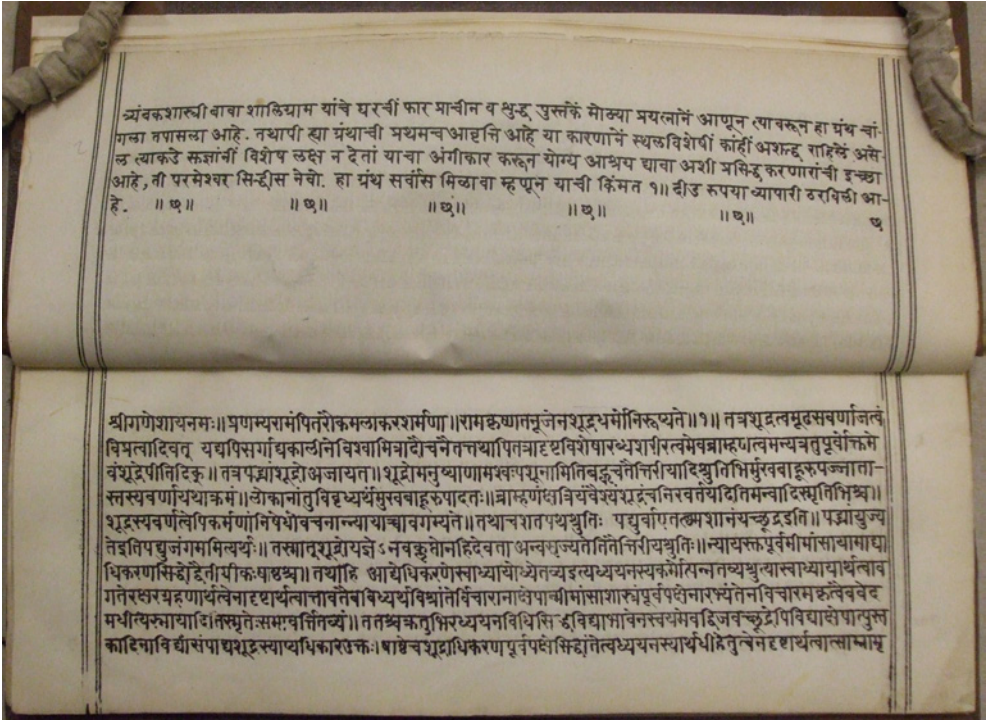 त्र्यंबकशास्त्री बावा शालिग्राम यांचे घरचीं फार प्राचीन व शुद्ध पुस्तकें मोठ्या प्रयत्नानें आणून त्यावरून हा ग्रंथ चां-
गला तपासला आहे. तथापी ह्या ग्रंथाची प्रथमच आवृत्ति आहे या कारणानें स्थलविशेषीं कांहीं अशुद्ध राहिलें असे-
ल त्याकडे सज्ञांनीं विशेष लक्ष न देतां याचा अंगीकार करून योग्य आश्रय द्यावा अशी प्रसिद्ध करणारांची इच्छा
आहे, ती परमेश्वर सिद्धीस नेवो. हा ग्रंथ सर्वांस मिळावा म्हणून याची किंमत १॥ दीड रुपया व्यापारी ठरविली आ-
हे. ॥ छ॥ ॥ छ॥ ॥ छ॥ ॥ छ॥ ॥ छ॥ छ
श्रीगणेशायनमः॥ प्रणम्यरामंपितरंकमलाकरशर्मणा॥ रामकृष्णतनूजेनशूद्रधर्मोनिरूप्यते॥१॥ तत्रशूद्रत्वमूढसवर्णाजत्वं
विप्रत्वादिवत् यद्यपिसर्गाद्यकालीनेविश्वामित्रादौचनैतत्तथापितत्रादृष्टविशेषारब्धशरीरत्वमेवब्राम्हणत्वमन्यत्रतुपूर्वोक्तमे
वंशूद्रेपीतिदिक्॥ तत्रपद्भ्यांशूद्रोअजायत॥ शूद्रोमनुष्याणामश्वःपशूनामितिबह्वृचतैत्तिरीयादिश्रुतिभिर्मुखबाहूरुपज्जाता-
स्तस्यवर्णायथाक्रमं॥ लोकानांतुविवृध्यर्थंमुखबाहूरुपादतः॥ ब्राम्हणंक्षत्रियंवैश्यंशूद्रंचनिरवर्तयदितिमन्वादिस्मृतिभिश्च॥
शूद्रस्यवर्णत्वेपिकर्मणांनिषेधोवचनान्न्यायाच्चावगम्यते॥ तथाचशतपथश्रुतिः पद्युर्वाएतत्श्मशानंयच्छूद्रइति॥ पद्भ्यांयुज्य
तेइतिपद्युजंगममित्यर्थः॥ तस्मात्शूद्रोयज्ञेऽनवकॢप्तोनहिदेवता अन्वसृज्यतेतितैत्तिरीयश्रुतिः॥ न्यायस्तुपूर्वमीमांसायामाद्या
धिकरणसिद्धोद्वैतीयीकःषाष्ठश्च॥ तथाहि आद्येधिकरणेस्वाध्यायोध्येतव्यइत्यध्ययनस्यकर्मोत्पन्नतव्यश्रुत्यास्वाध्यायार्थत्वाव
गतेरक्षरग्रहणार्थत्वेनादृष्टार्थत्वात्तावतैवविध्यर्थविश्रांतेर्विचारानाक्षेपान्मीमांसाशास्त्रपूर्वपक्षेनारभ्यंतेनविचारमकृत्वैववेद
मधीत्यस्नायादितिस्मृतेःसमावर्त्तितव्यं॥ ततश्चक्रतुभिरध्ययनविधिसिद्धविद्याभावेनस्वयमेवद्विजवच्छूद्रेपिविद्याक्षेपात्पुस्त
कादिनाविद्यांसंपाद्यशूद्रस्याप्यधिकारउक्तः। षाष्ठेचशूद्राधिकरणपूर्वपक्षेसिद्धांतेत्वध्ययनस्यार्थधीहेतुत्वेनदृष्टार्थत्वात्